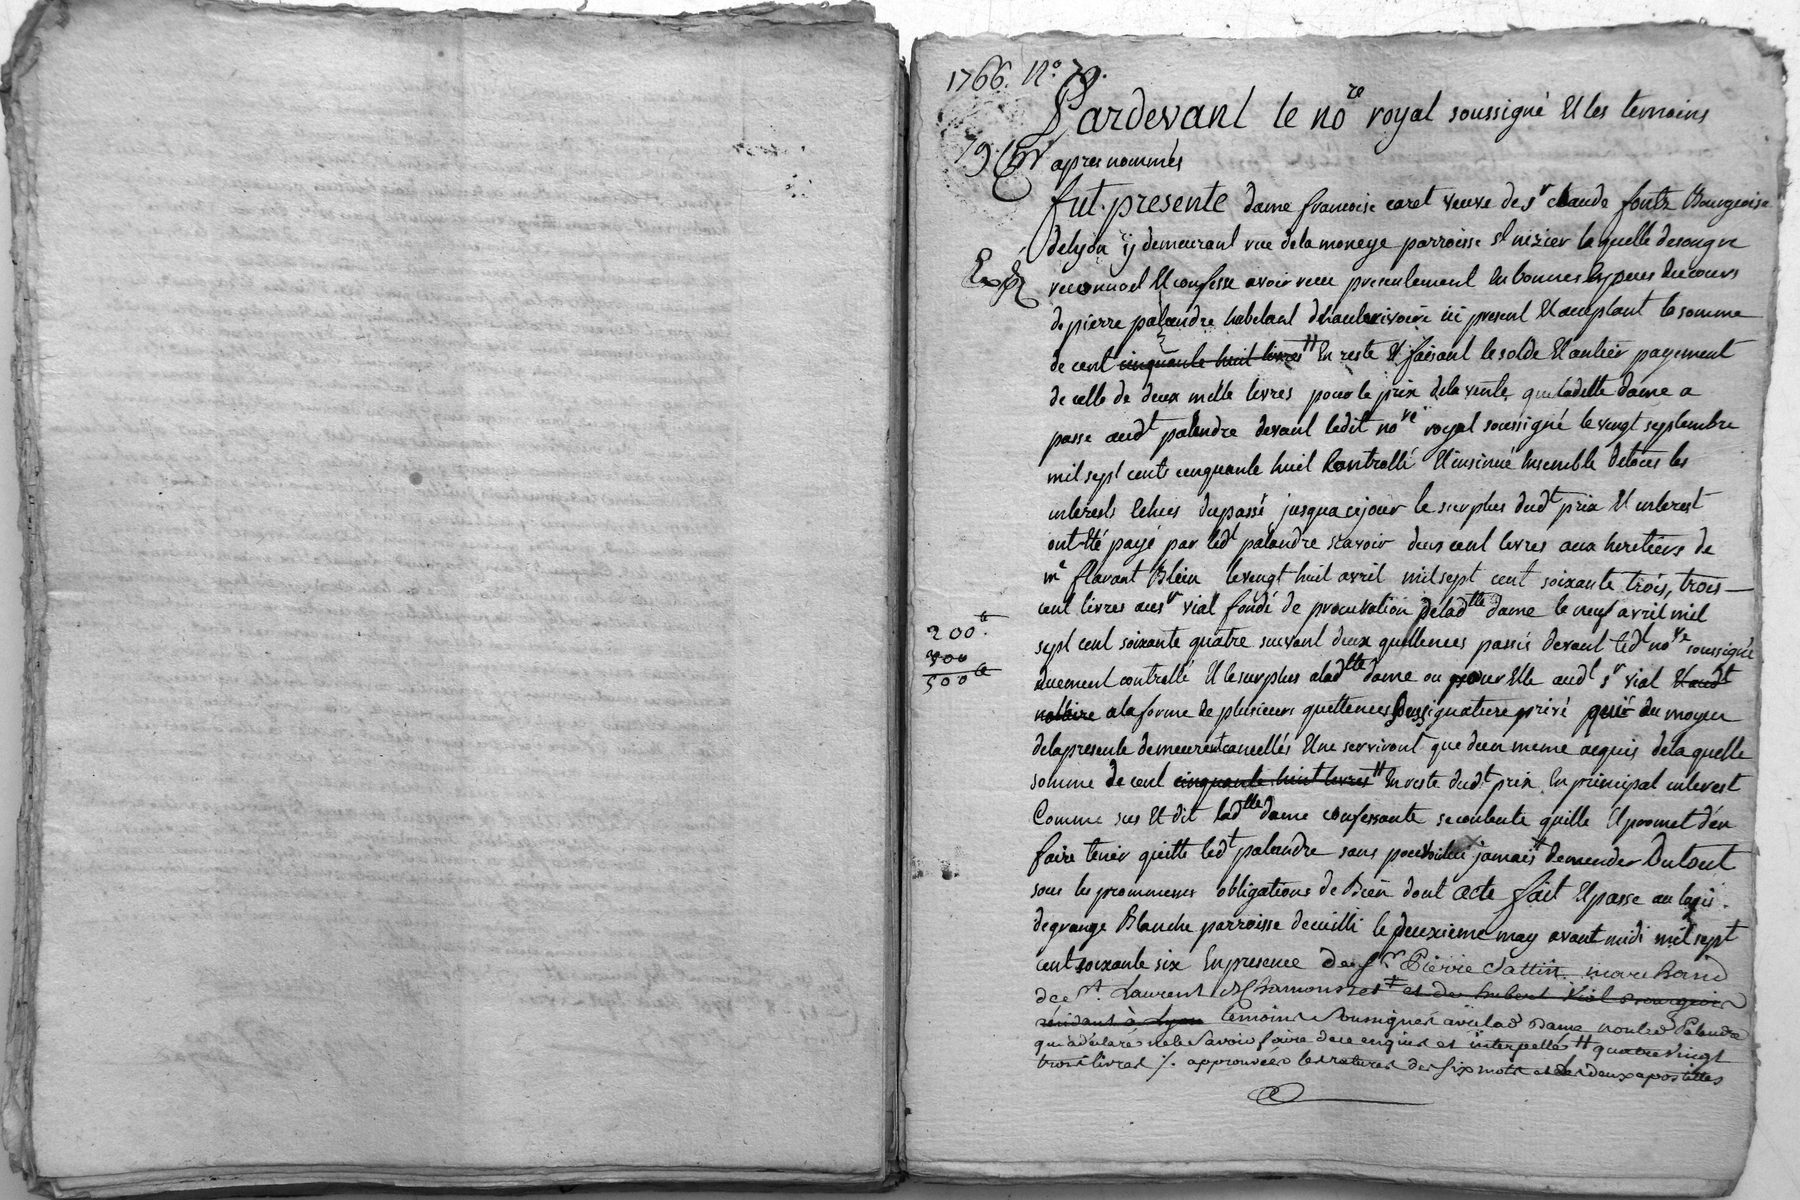 1766. N° 79.
Pardevant le no.re royal soussigné Et les temoins
79 apres nommés
fut presente dame francoise caret veuve de sr claude Bourgeoise
delyon ÿ demeurant rue de la moneye parroisse st nizier laquelle de son gre
Exp
reconnoit Et confesse avoir receu presentement En bonnes Especes du cours
de pierre palandre habitant d'hauterivoire ici present Et acceptant la somme
de cent cinquante huit livres # En reste Et faisant le solde Et entier payement
de celle de deux mille livres pour le prix dela vente que ladette dame a
passe audt palandre devant ledit no.re royal soussigné le vingt septembre
mil sept cents cinquante huit Controllé Et insinué Ensemble detous les
interests Echus du passé jusqua ce jour le surplus dudt prix Et interest
ont Eté payé par ledt palandre scavoir deux cent livres aux heretiers de
me flavant Blein le vingt huit avril mil sept cent soixante trois, trois
cent livres au sr vial fondé de procuration de ladtte dame le neuf avril mil
200 lt
300
500 lt
sept cent soixante quatre suivant deux quettences passés devant ledt no.re soussigné
duement controllé Et le surplus a ladtte dame ou pour Elle audt sr vial Et audt
nottaire a la forme de plusieurs quettences sous signature privé qui au moyen
delapresente demeurent cancellés Et ne serviront que d'un meme acquis de laquelle
somme de cent cinquante huit livres # En reste dudt prix En principal interest
Comme sus Et dit ladtte dame confessante se contente quitte Et promet d'en
faire tenir quitte ledt palandre sans jamais demender Du tout
sous les prommesses obligations de Bien dont acte fait Et passe au logis
de grange Blanche parroisse d'ecuilli le deuxieme may avant midi mil sept
cent soixante six En presence de sr Pierre Sattin marchand
de st Laurent de Chamousset ‡ et de hubert Vial Bourgeois
résidant à Lyon temoins Soussignés avec lad Dame non led Palandre
qui a declaré ne le savoir faire de ce enquis et interpellé # quatre vingt
trois livres ⁒ approuvées les ratures de six mots et les deux apostilles